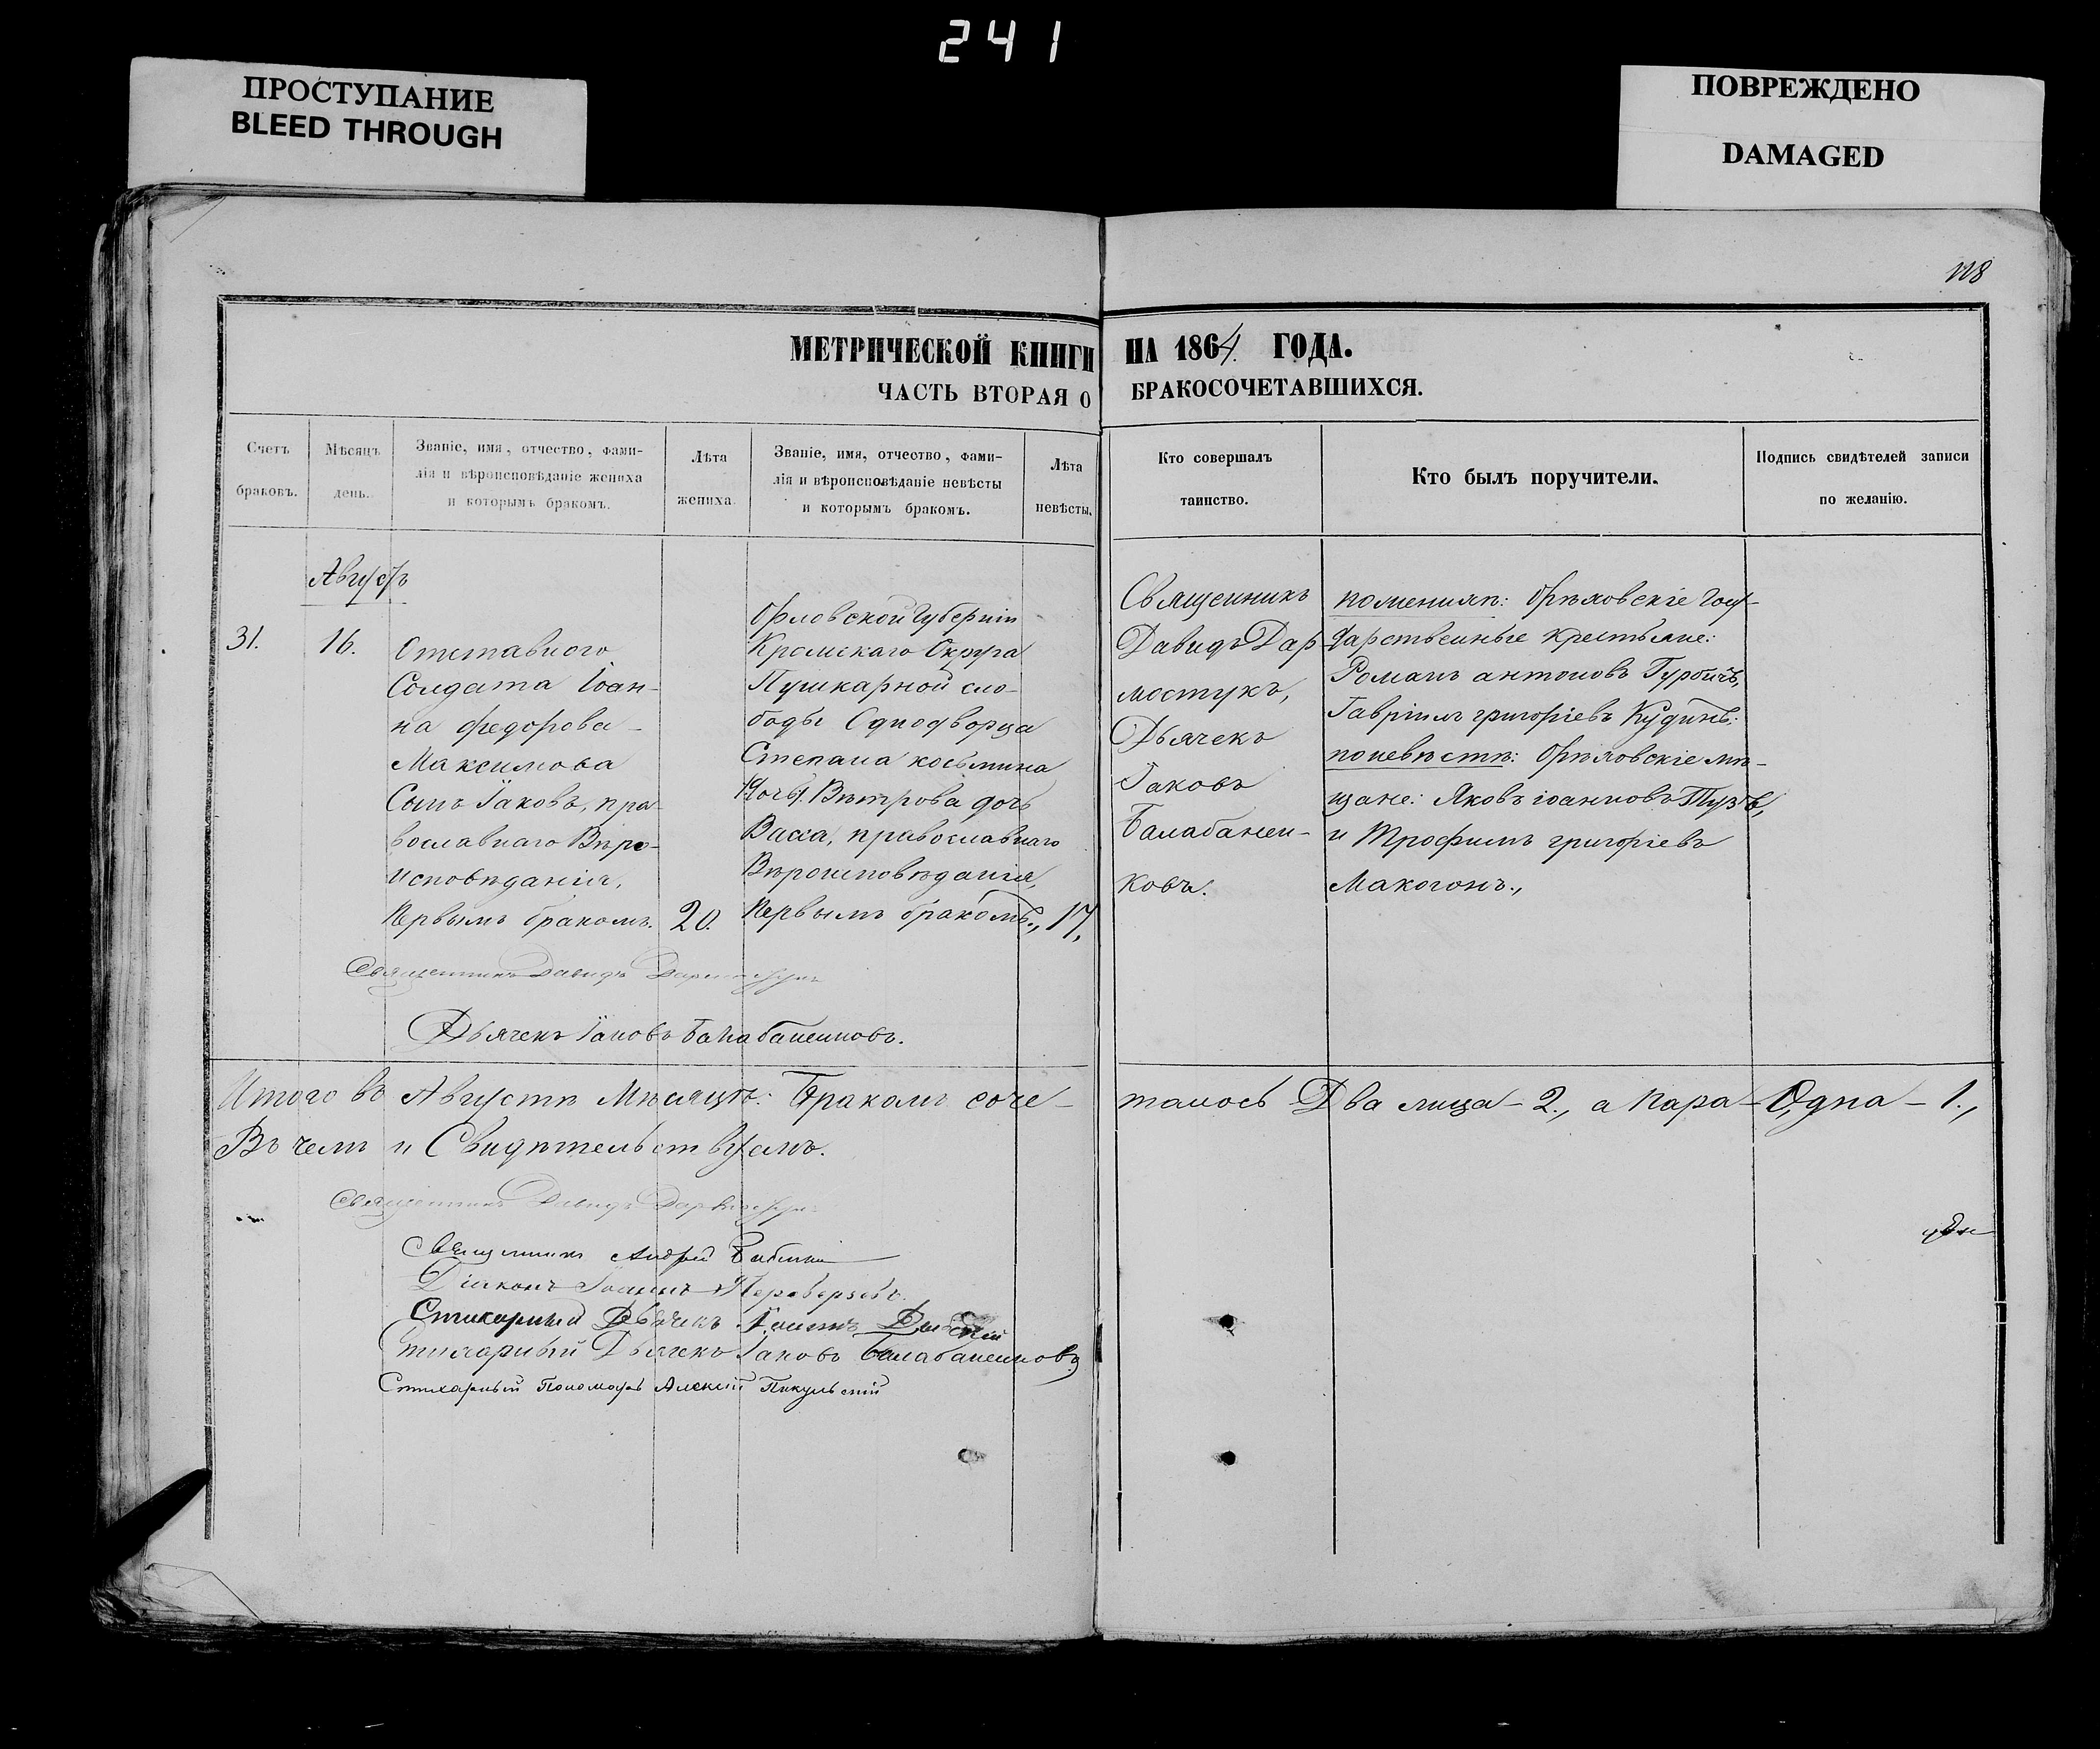 241
ПРОСТУПАНИЕ
BLEED THROUGH
ПОВРЕЖДЕНО
DAMAGED
118
МЕТРИЧЕСКОЙ КНИГИ НА 1864 ГОДА.
ЧАСТЬ ВТОРАЯ О БРАКОСОЧЕТАВШИХСЯ.
Счетъ
браковъ.
Мѣсяцъ
день.
Званіе, имя, отчество, фами-
лія и вѣроисповѣданіе жениха
и которымъ бракомъ.
Лѣта
жениха.
Званіе, имя, отчество, фами-
лія и вѣроисповѣданіе невѣсты
и которымъ бракомъ.
Лѣта
невѣсты.
Кто совершалъ
таинство.
Кто былъ поручители.
Подпись свидѣтелей записи
по желанію.
Августъ
31.
16.
Отставного
Солдата Іоан-
на Федорова
Максимова
Сынъ Іаковъ, пра-
вославнаго Вѣро-
исповѣданія,
Первымъ бракомъ.
20.
Орловской Губерніи
Кромскаго Округа
Пушкарной сло-
боды Однодворца
Степана Косьмина
Вѣтрова дочь
Васса, православнаго
Вѣроисповѣданія,
Первымъ бракомъ.,
17,
Священникъ
Давидъ Дар-
мостукъ,
Дьячекъ
Іаковъ
Балабанен-
ковъ.
поженихѣ: Орѣховскіе Госу-
дарственные крестьяне:
Романъ антоновъ
Гавріилъ григоріевъ Кудинъ:
поневѣстѣ: Орѣховскіе мѣ-
щане: Яковъ іоанновъ Тузъ,
и Трофимъ григоріевъ
Макогонъ.,
Священникъ Давидъ Дармостукъ
Дьячекъ Іаковъ Балабаненковъ.
Итого въ Августѣ Мѣсяцѣ: Бракомъ соче-
талось Два лица - 2., а Пара - Одна - 1.,
Въ чемъ и Свидѣтельствуемъ.
Священникъ Давидъ Дармостукъ
Священникъ Андрей
Діаконъ Іоаннъ Переверзевъ.
Стихарный Дьячекъ
Стихарный Дьячекъ Іаковъ Балабаненковъ
Стихарный Пономарь Алексій Пикульскій